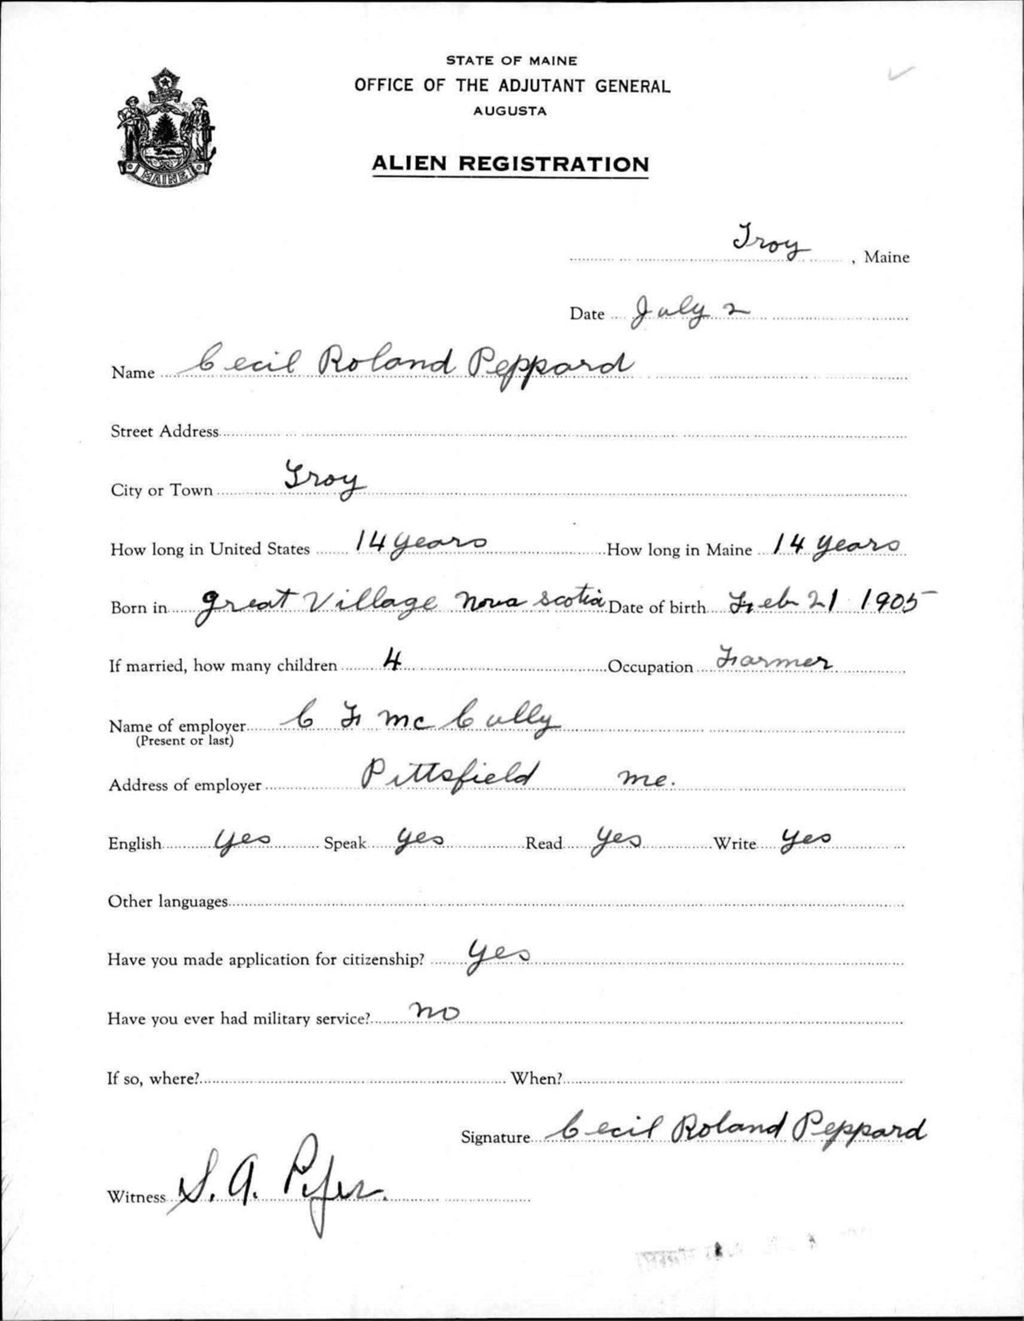 STATE OF MAINE
OFFICE OF THE ADJUTANT GENERAL
AUGUSTA
ALIEN REGISTRATION
MAINE
Troy, Maine
Date July 2
Name Cecil Roland Peppard
Street Address
City or Town Troy
How long in United States 14 years How long in Maine 14 years
Born in great Village nova scotia Date of birth Feb 21 1905
If married, how many children 4 Occupation Farmer
Name of employer C F mc Cully
(Present or last)
Address of employer Pittsfield me.
English yes Speak yes Read yes Write yes
Other languages
Have you made application for citizenship? yes
Have you ever had military service? no
If so, where? When?
Signature Cecil Roland Peppard
Witness S. A.